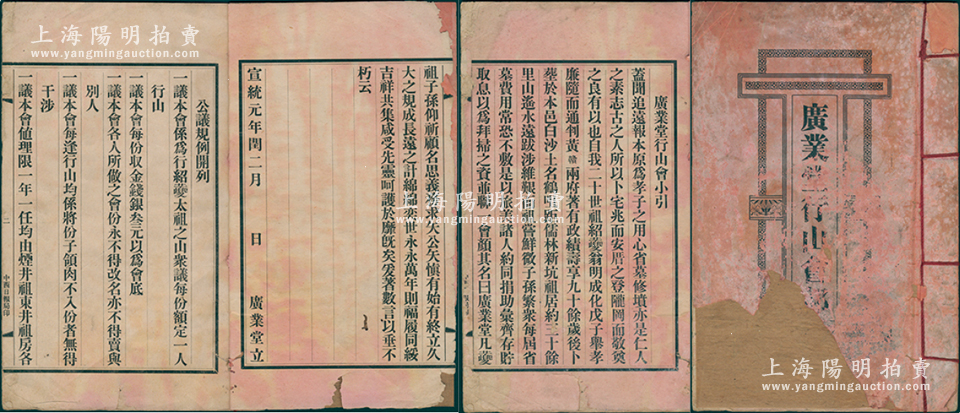 廣業堂行山會
廣業堂行山會小引
蓋聞追遠報本原爲孝子之用心省墓修墳亦是仁人
之素志古之人所以卜宅兆而安厝之登隴岡而敬奠
之良有以也自我二十世祖紹蔘翁明成化戊子舉孝
廉隨而通判黃贛兩府著有政績壽享九十餘歲後卜
塋於本邑白沙土名鶴 儒林新坑祖居約三十餘
里山遙水遠跋涉維艱 嘗鮮微子孫繁衆每屆省
墓費用常恐不敷是以旅 諸人約同捐助彙齊存貯
取息以爲拜掃之資並聯 會顏其名曰廣業堂凡蔘
祖子孫仰祈顧名思義 求矢公矢愼有始有終立久
大之規成長遠之計綿綿奕世永永萬年則福履同綏
吉祥共集咸受先靈呵護於靡旣矣爰著數言以垂不
朽云
宣統元年閏二月 日 廣業堂立
公議規例開列
一議本會係爲行紹蔘太祖之山衆議每份額定一人
行山
一議本會每份收金錢銀叁元以爲會底
一議本會各人所做之會份永不得改名亦不得賣與
別人
一議本會每逢行山均係將份子領肉不入份者無得
干涉
一議本會値理限一年一任均由煙井祖東井祖房各
中西日報局印
上海陽明拍賣
www.yangmingauction.com
上海陽明拍賣
www.yangmingauction.com